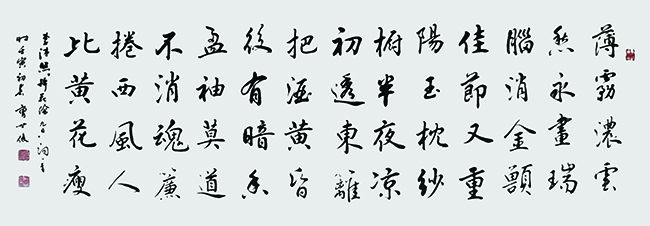 薄霧濃雲
愁永晝瑞
腦消金獸
佳節又重
陽玉枕紗
橱半夜涼
初透東籬
把酒黃昏
後有暗香
盈袖莫道
不消魂簾
捲西風人
比黃花瘦
李清照醉花陰
時壬寅初